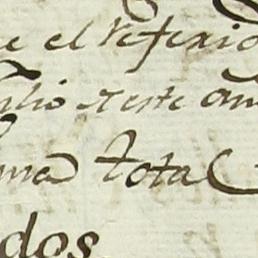 e el refexio
ilio reste am
ma total
dos